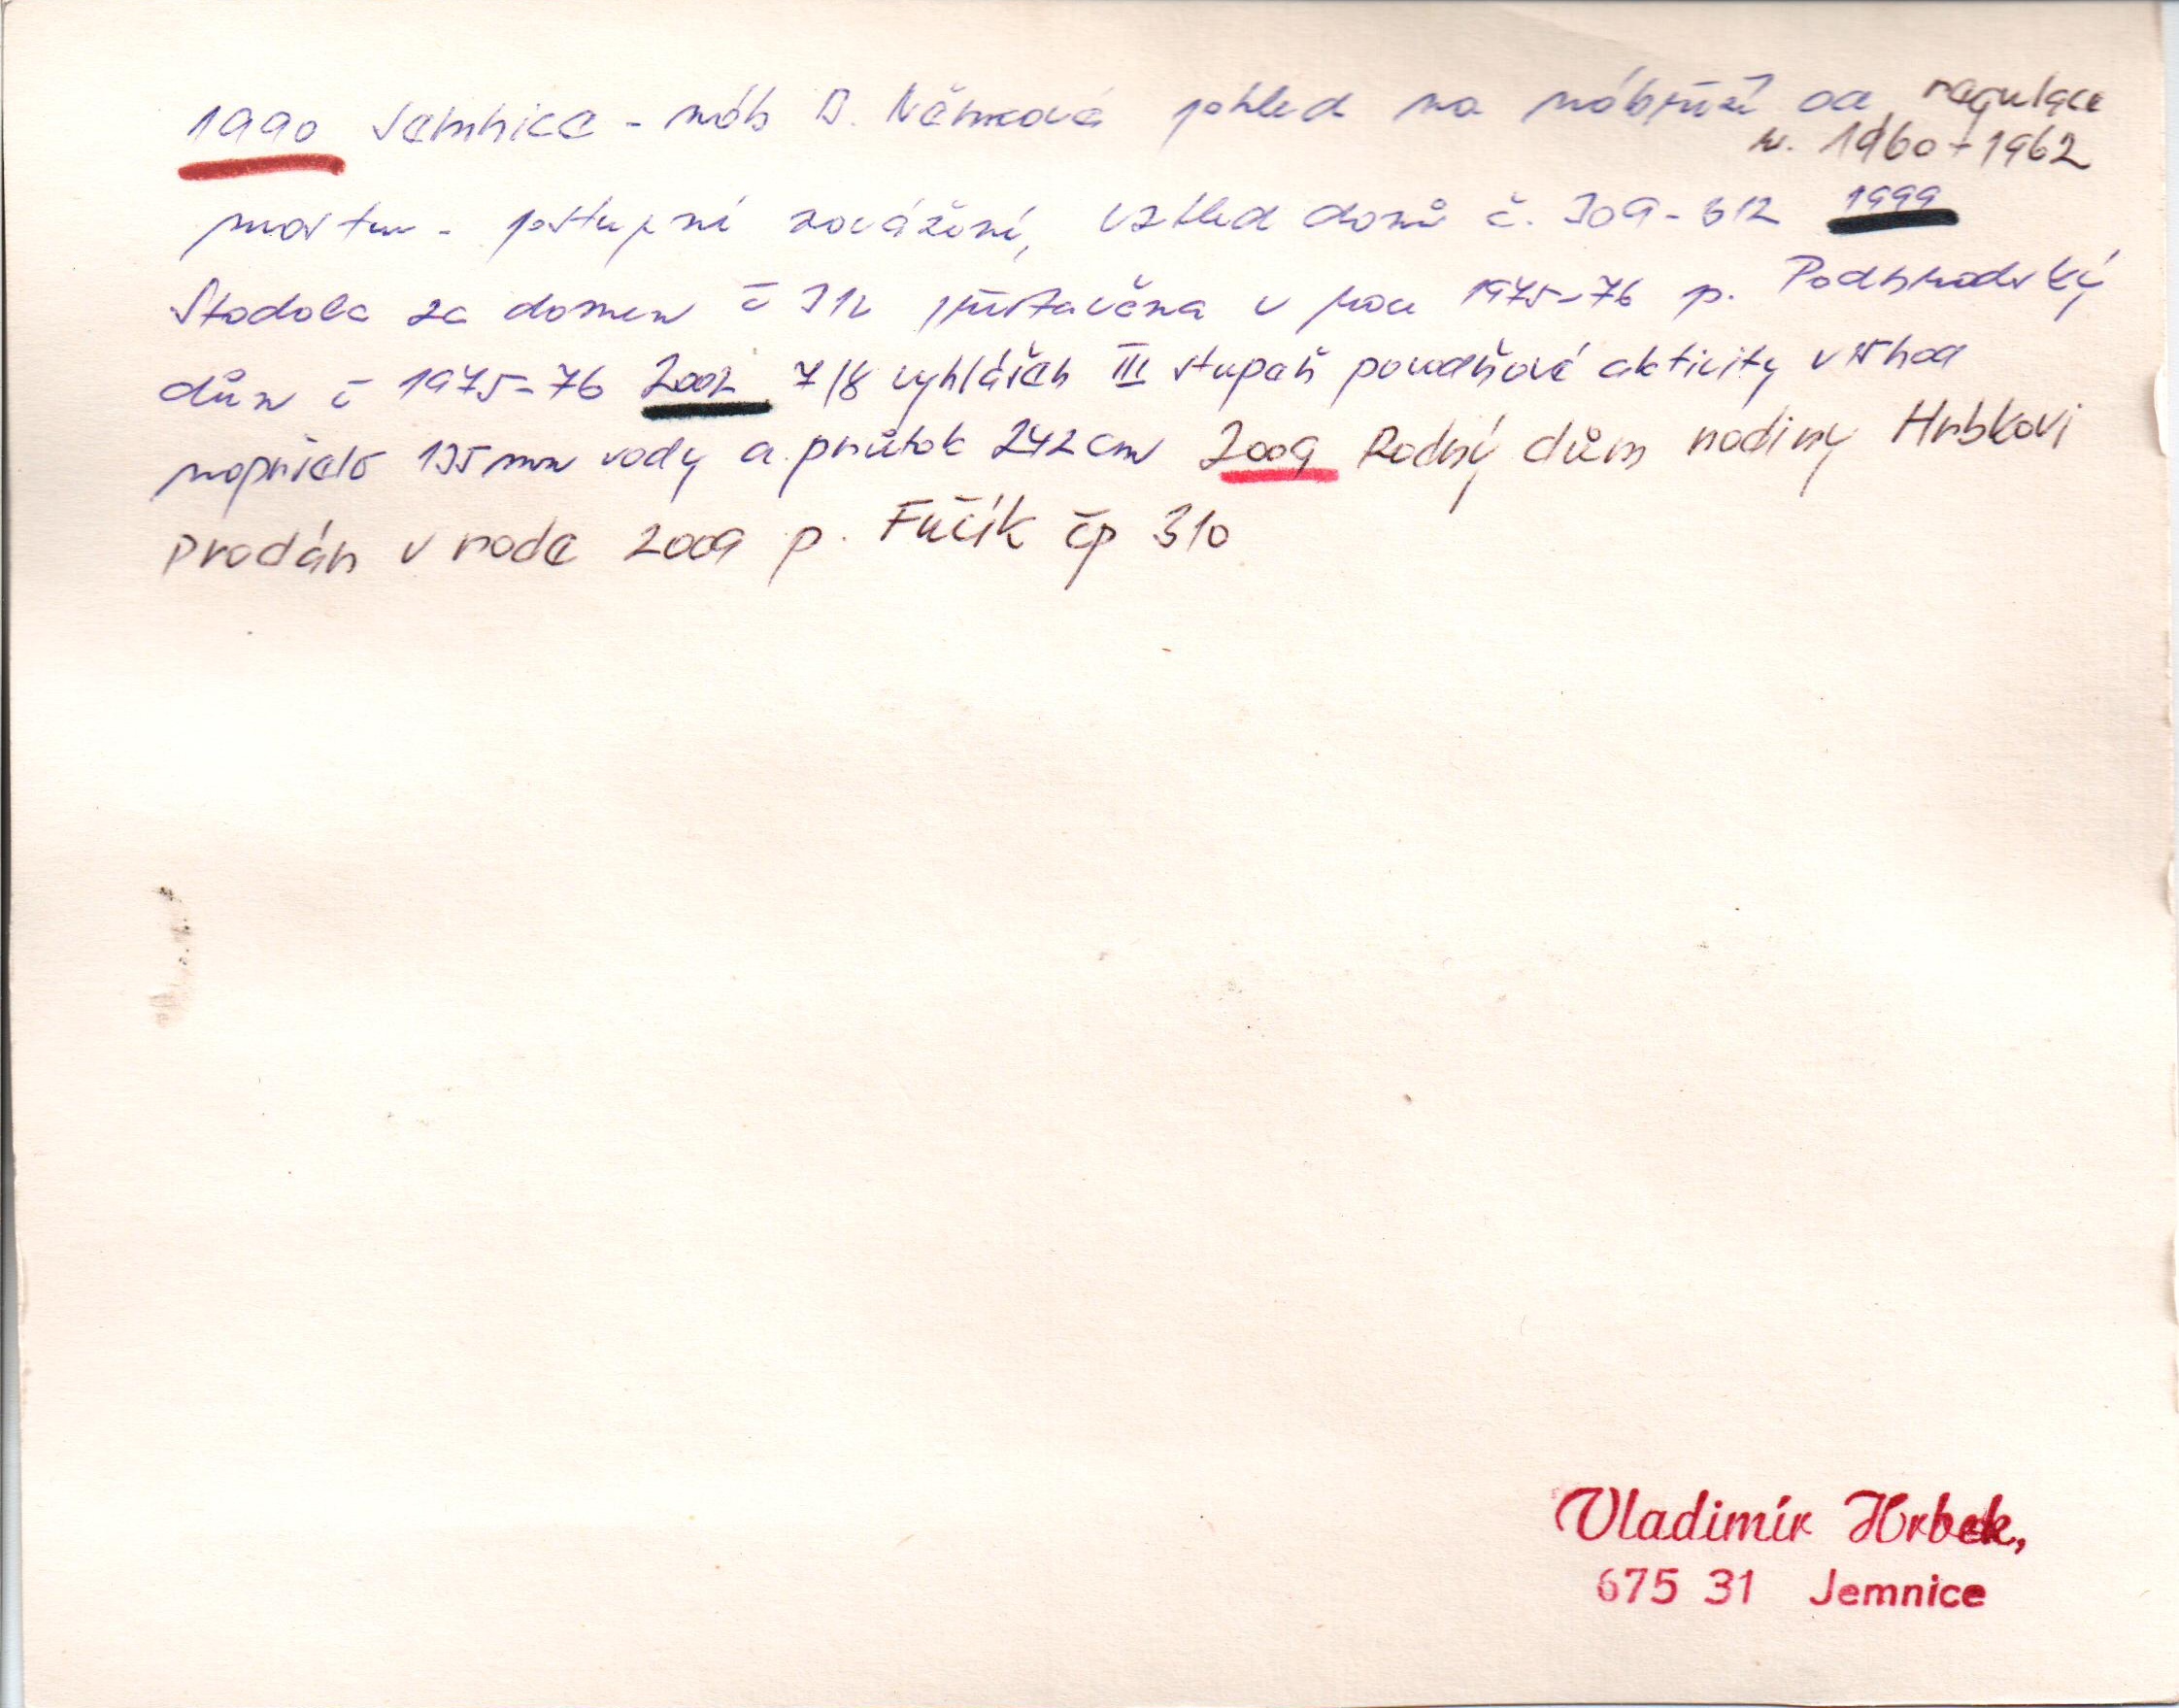 1990 Jemnice - náb B. Němcové pohled na nábřeží od regulace
r. 1960-1962
mostu - postupné zavážení, vzhled domů č. 309-312 1999
Stodola za domem č 312 přistavěna v roce 1975-76 p. Podhradský
dům č 1975-76 2002 7/8 vyhlášen III stupeň povodňové aktivity
napršelo 135 mm vody a průtok 242 cm 2009 Rodný dům rodiny Hrbkovi
prodán v roce 2009 p. Fučík čp 310
Vladimír Hrbek,
675 31 Jemnice